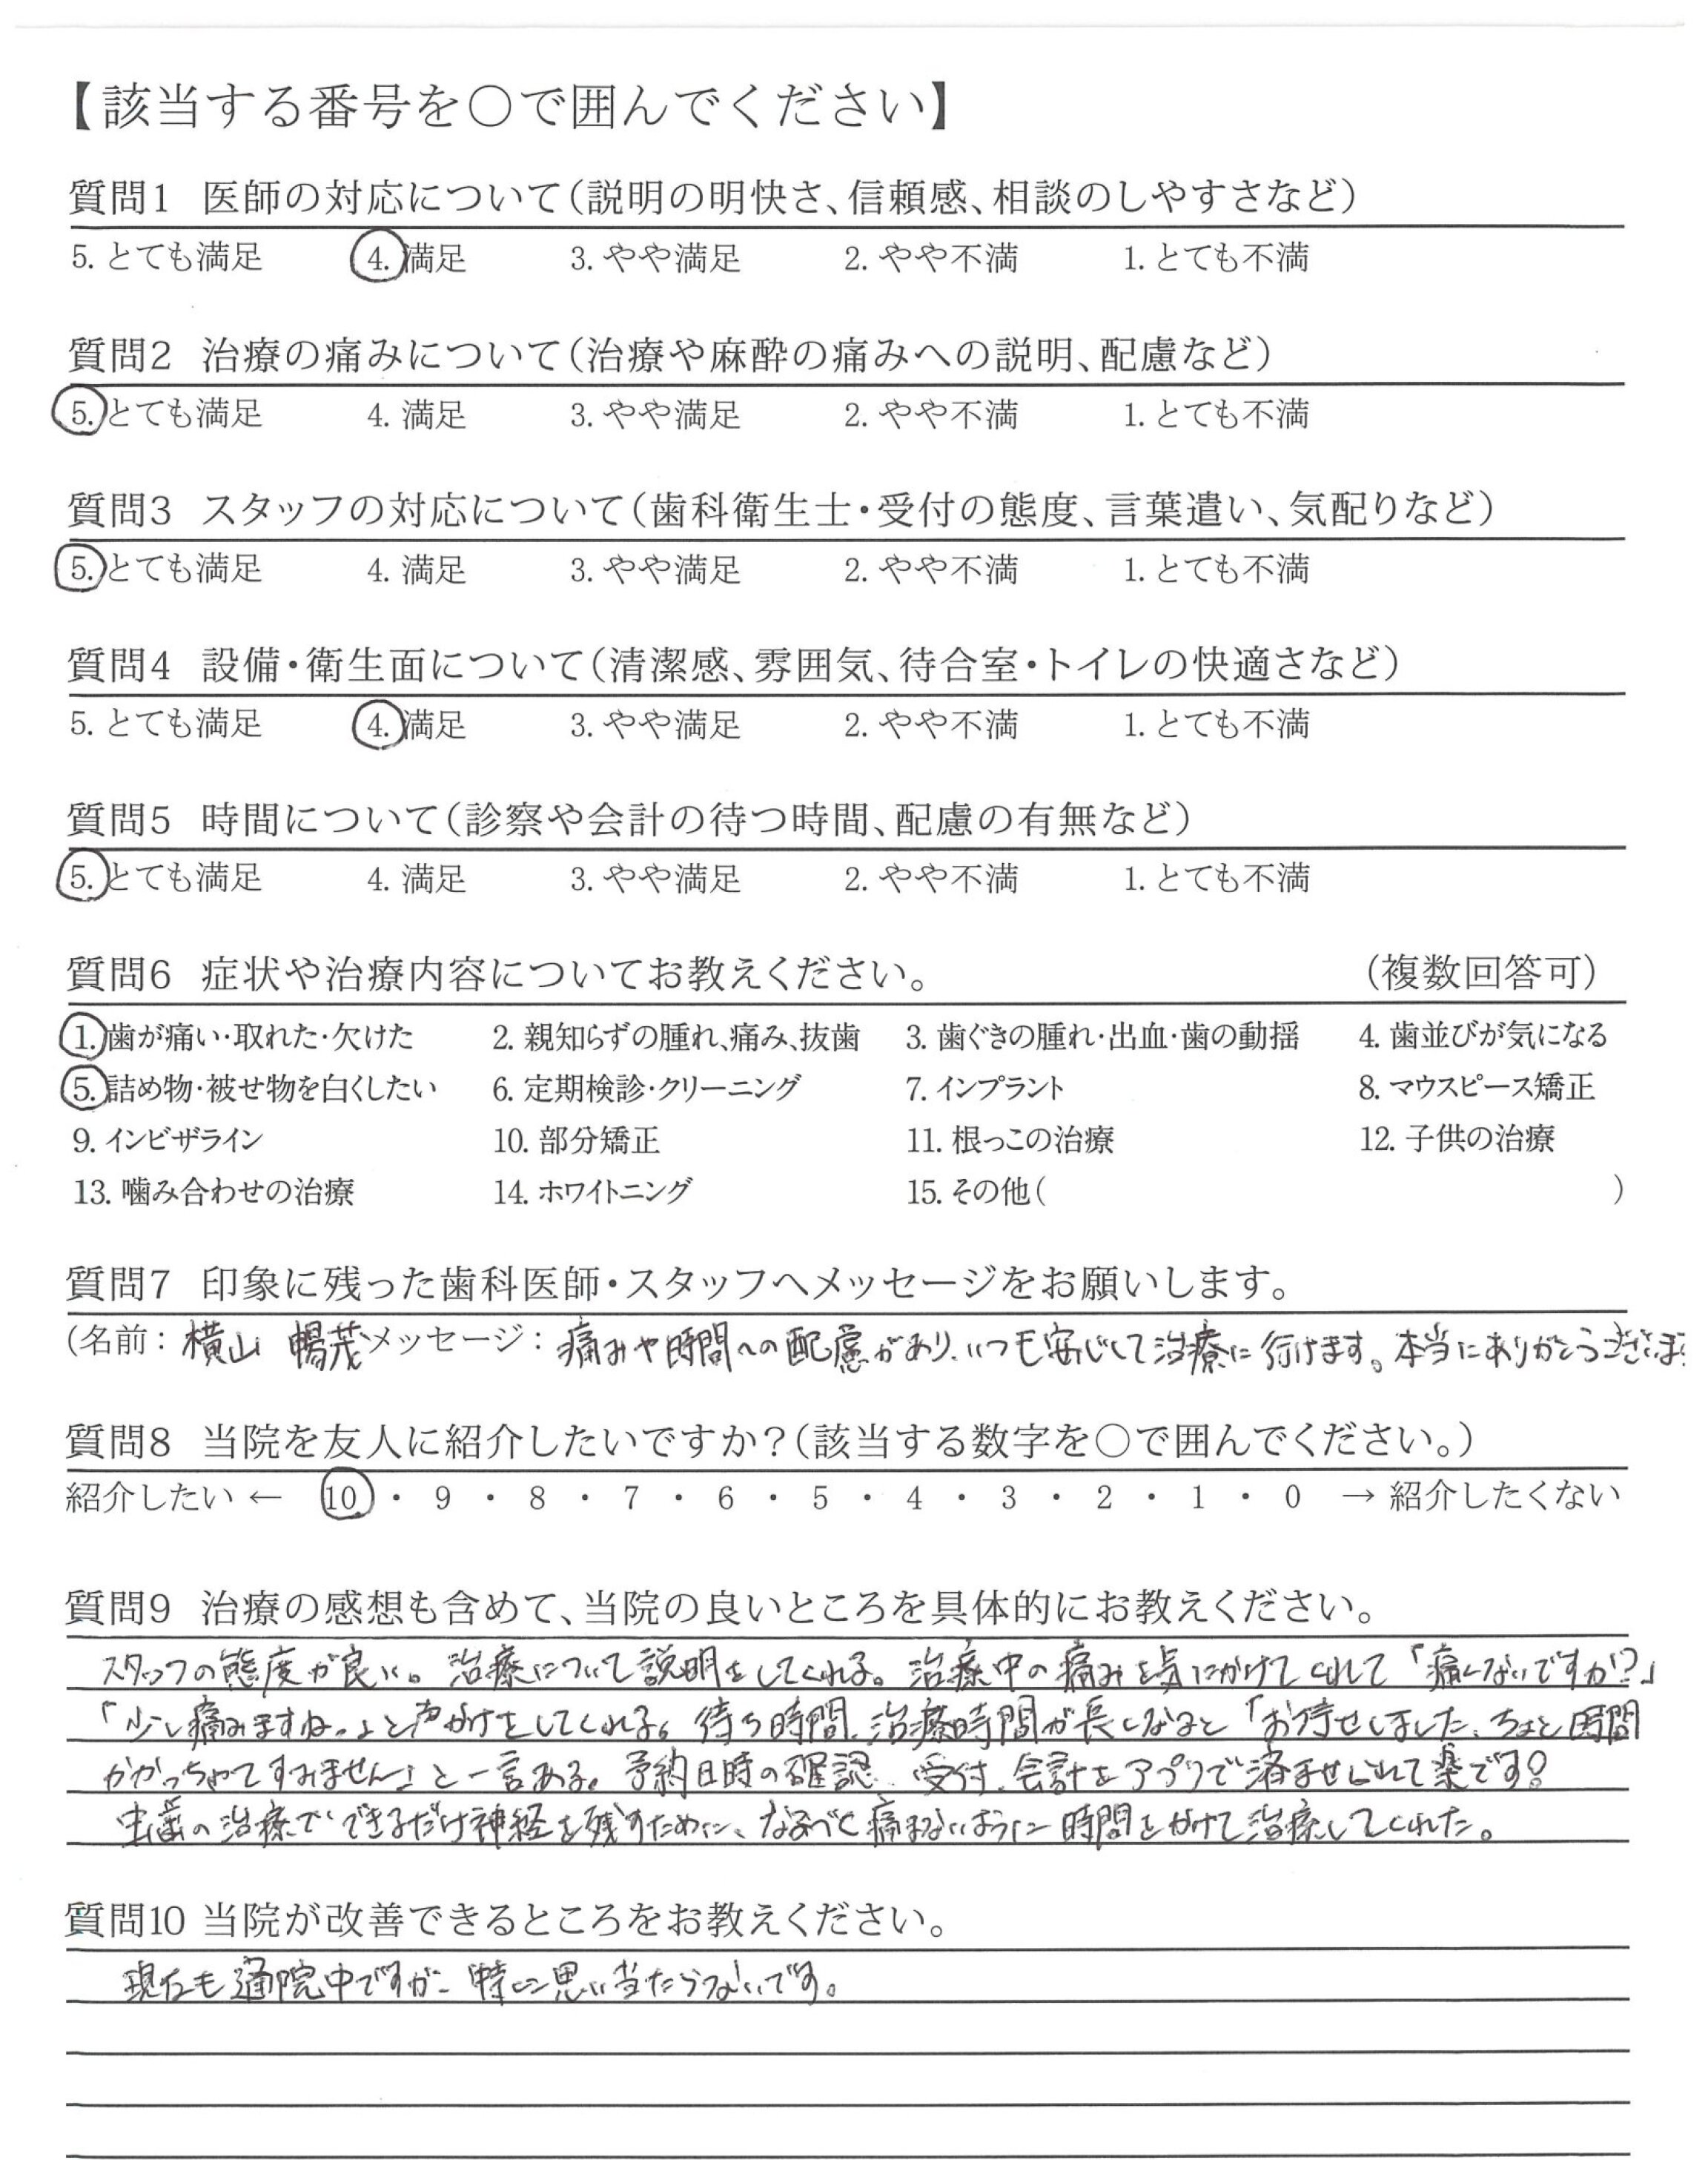 【該当する番号を○で囲んでください】
質問1 医師の対応について(説明の明快さ、信頼感、相談のしやすさなど)
5. とても満足 4. 満足 3. やや満足 2. やや不満 1. とても不満
質問2 治療の痛みについて(治療や麻酔の痛みへの説明、配慮など)
5. とても満足 4. 満足 3. やや満足 2. やや不満 1. とても不満
質問3 スタッフの対応について(歯科衛生士・受付の態度、言葉遣い、気配りなど)
5. とても満足 4. 満足 3. やや満足 2. やや不満 1. とても不満
質問4 設備・衛生面について(清潔感、雰囲気、待合室・トイレの快適さなど)
5. とても満足 4. 満足 3. やや満足 2. やや不満 1. とても不満
質問5 時間について(診察や会計の待つ時間、配慮の有無など)
5. とても満足 4. 満足 3. やや満足 2. やや不満 1. とても不満
質問6 症状や治療内容についてお教えください。 (複数回答可)
1. 歯が痛い・取れた・欠けた 2. 親知らずの腫れ、痛み、抜歯 3. 歯ぐきの腫れ・出血・歯の動揺 4. 歯並びが気になる
5. 詰め物・被せ物を白くしたい 6. 定期検診・クリーニング 7. インプラント 8. マウスピース矯正
9. インビザライン 10. 部分矯正 11. 根っこの治療 12. 子供の治療
13. 噛み合わせの治療 14. ホワイトニング 15. その他( )
質問7 印象に残った歯科医師・スタッフへメッセージをお願いします。
(名前: 横山 暢茂 メッセージ: 痛みや時間への配慮があり、いつも安心して治療に行けます。本当にありがとうございま
質問8 当院を友人に紹介したいですか?(該当する数字を○で囲んでください。)
紹介したい ← 10 ・ 9 ・ 8 ・ 7 ・ 6 ・ 5 ・ 4 ・ 3 ・ 2 ・ 1 ・ 0 → 紹介したくない
質問9 治療の感想も含めて、当院の良いところを具体的にお教えください。
スタッフの態度が良い。治療について説明をしてくれる。治療中の痛みを気にかけてくれて「痛くないですか?」
「少し痛みますね。」と声がけをしてくれる。待ち時間、治療時間が長くなると「お待せしました、ちょと時間
かかっちゃてすみません」と一言ある。予約日時の確認、受付、会計をアプリで済ませられて楽です。
虫歯の治療でできるだけ神経を残すために、なるべく痛まないように時間をかけて治療してくれた。
質問10 当院が改善できるところをお教えください。
現在も通院中ですが、特に思い当たらないです。